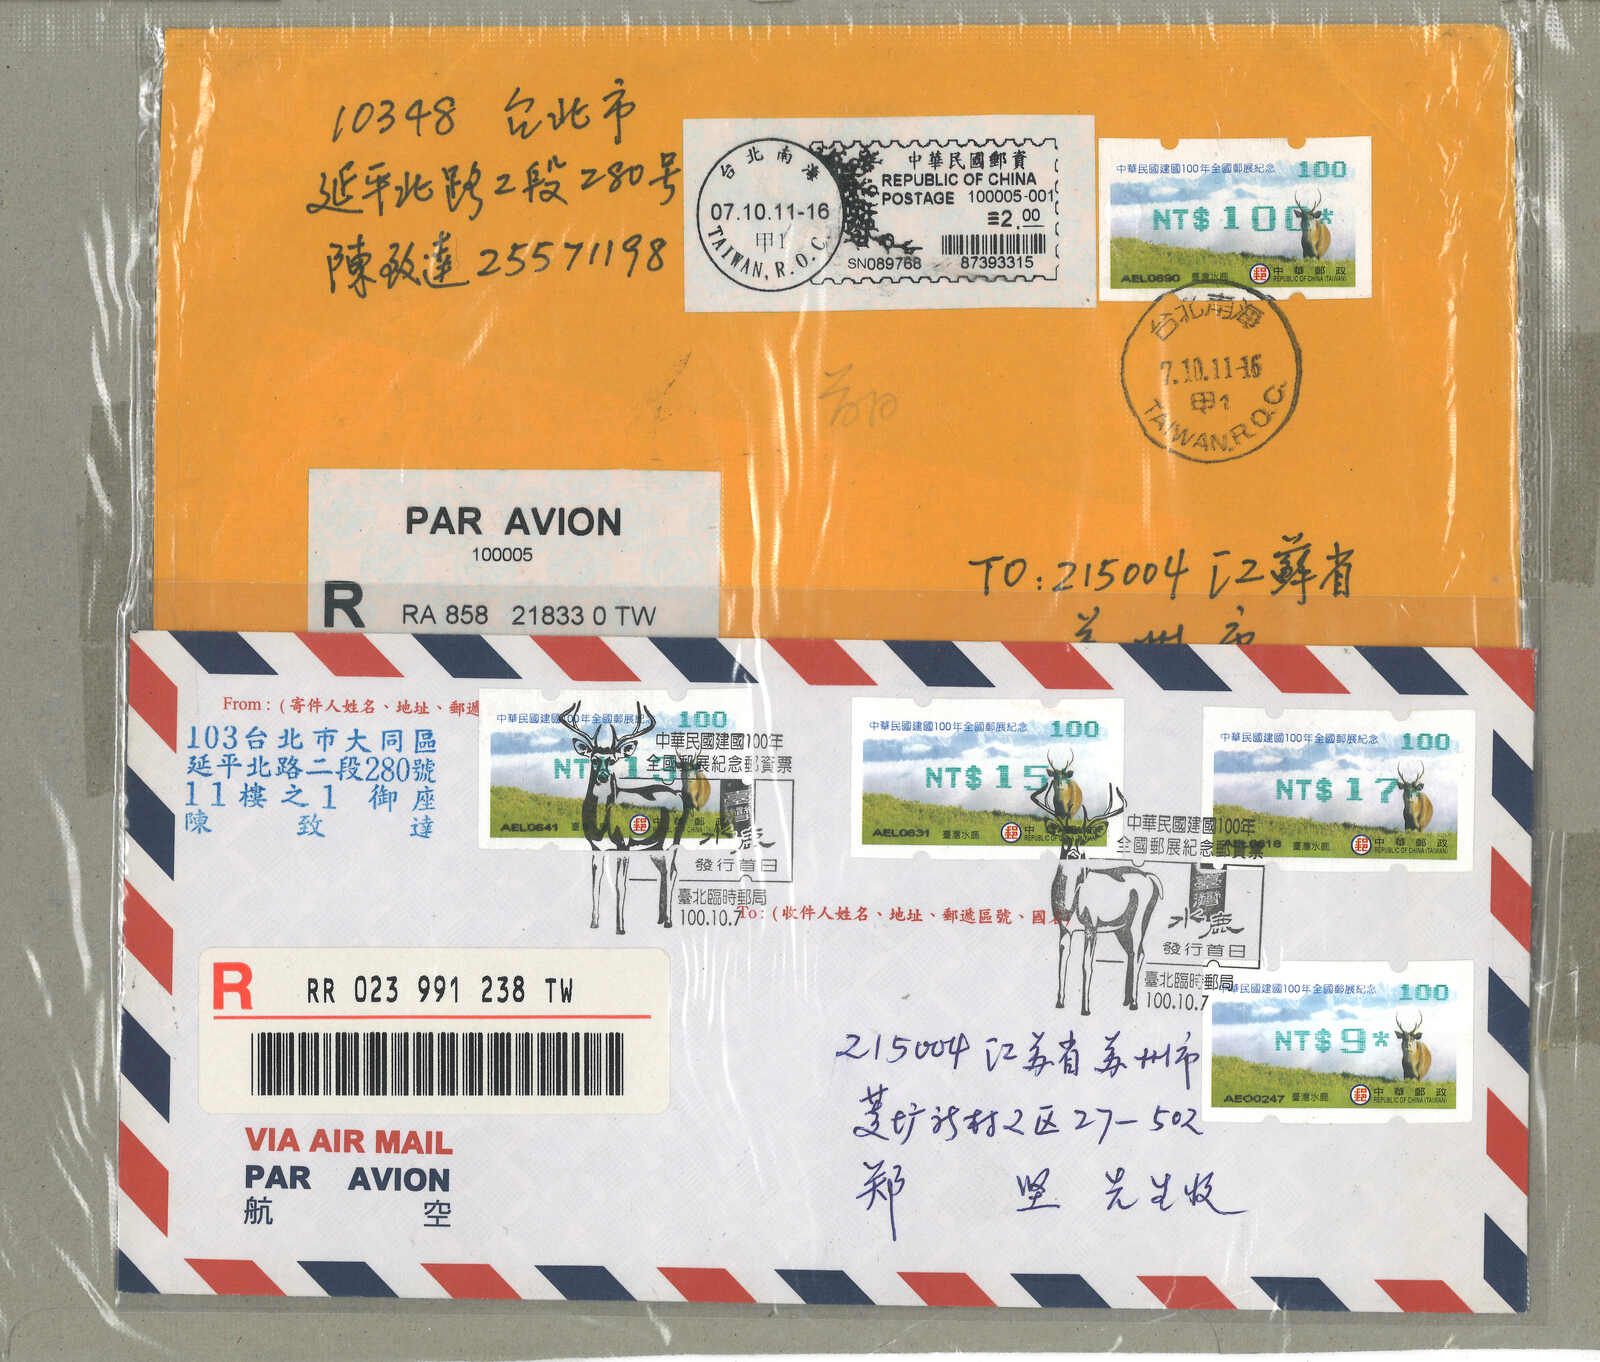 10348 台北市
延平北路2段280号
陳致達25571198
台北南海
07.10.11-16
甲1
TAIWAN, R.O.C.
中華民國郵資
REPUBLIC OF CHINA
POSTAGE 100005-001
2.00
SN089768 87393315
中華民國建國100年全國郵展紀念 100
NT$100*
AEL0690 臺灣水鹿 中華郵政
REPUBLIC OF CHINA (TAIWAN)
台北南海
7.10.11-16
甲1
TAIWAN, R.O.C.
PAR AVION
100005
R RA 858 21833 0 TW
TO:215004 江蘇省
From: (寄件人姓名、地址、郵遞
103台北市大同區
延平北路二段280號
11樓之1 御座
陳致達
中華民國建國100年全國郵展紀念 100
AEL0641
中華民國建國100年
全國郵展紀念郵資票
水鹿
發行首日
臺北臨時郵局
100.10.7
中華民國建國100年全國郵展紀念 100
NT$15
AEL0631 臺灣水鹿
中華民國建國100年全國郵展紀念 100
NT$17
臺灣水鹿 中華郵政
REPUBLIC OF CHINA (TAIWAN)
中華民國建國100年
全國郵展紀念郵資票
臺灣
水鹿
發行首日
臺北臨時郵局
100.10.7
To: (收件人姓名、地址、郵遞區號、國名)
中華民國建國100年全國郵展紀念 100
NT$9*
AEO0247 臺灣水鹿 中華郵政
REPUBLIC OF CHINA (TAIWAN)
R RR 023 991 238 TW
VIA AIR MAIL
PAR AVION
航空
215004 江苏省苏州市
新村2区27-502
郑坚先生收